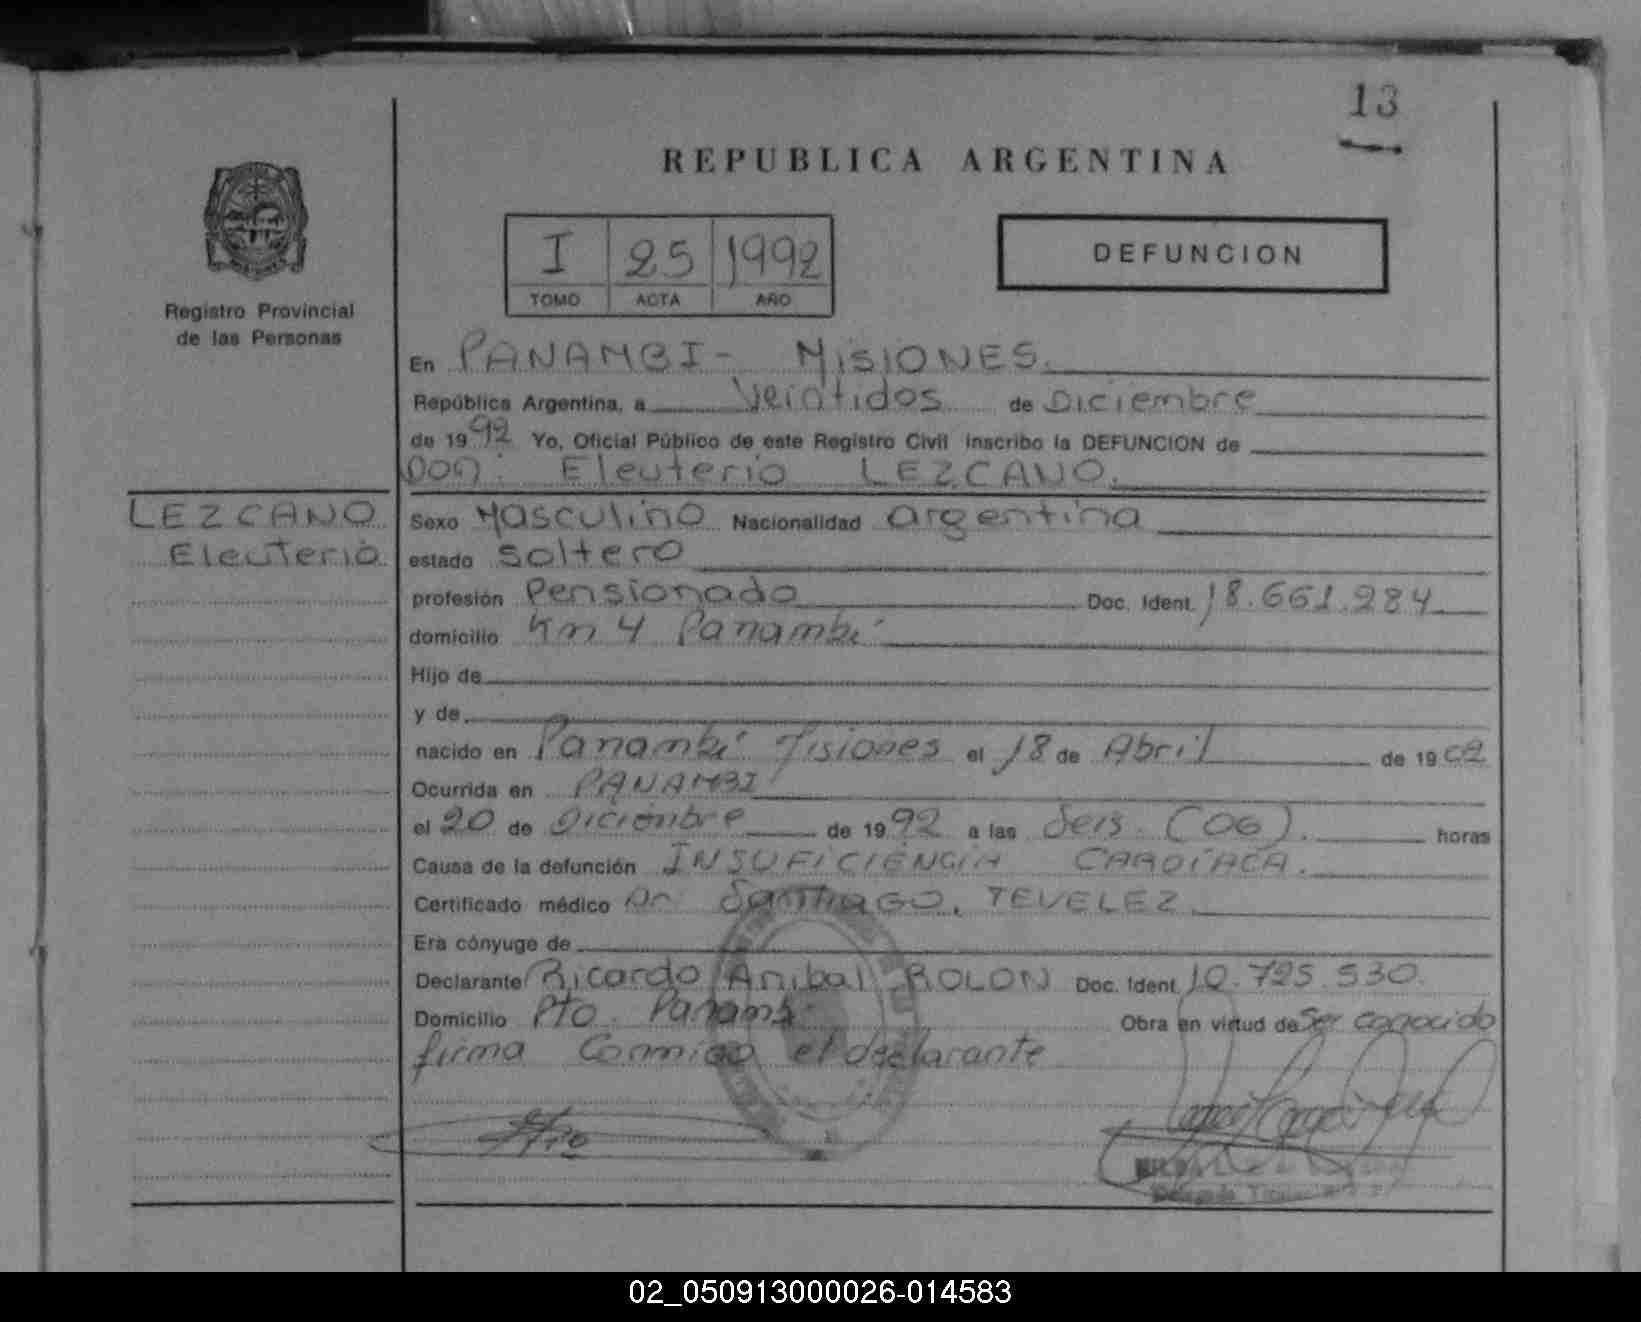 13
REPUBLICA ARGENTINA
I 25 1992
TOMO ACTA AÑO
DEFUNCION
Registro Provincial
de las Personas
En PANAMBI - MISIONES.
República Argentina, a Veintidos de Diciembre
de 1992 Yo, Oficial Público de este Registro Civil inscribo la DEFUNCION de
Don: Eleuterio LEZCANO.
LEZCANO
Eleuterio
Sexo Masculino Nacionalidad argentina
estado soltero
profesión Pensionado Doc. Ident. 18.661.284
domicilio Km 4 Panambí
Hijo de
y de
nacido en Panambí Misiones el 18 de Abril de 1902
Ocurrida en PANAMBI
el 20 de Diciembre de 1992 a las Seis. (06). horas
Causa de la defunción INSUFICIENCIA CARDIACA.
Certificado médico Dr Santiago. TEVELEZ
Era cónyuge de
Declarante Ricardo Anibal ROLON Doc. Ident. 10.725.530.
Domicilio Pto. Panambí Obra en virtud de Ser conocido
firma Conmigo el declarante
Delegada Titular
02_050913000026-014583